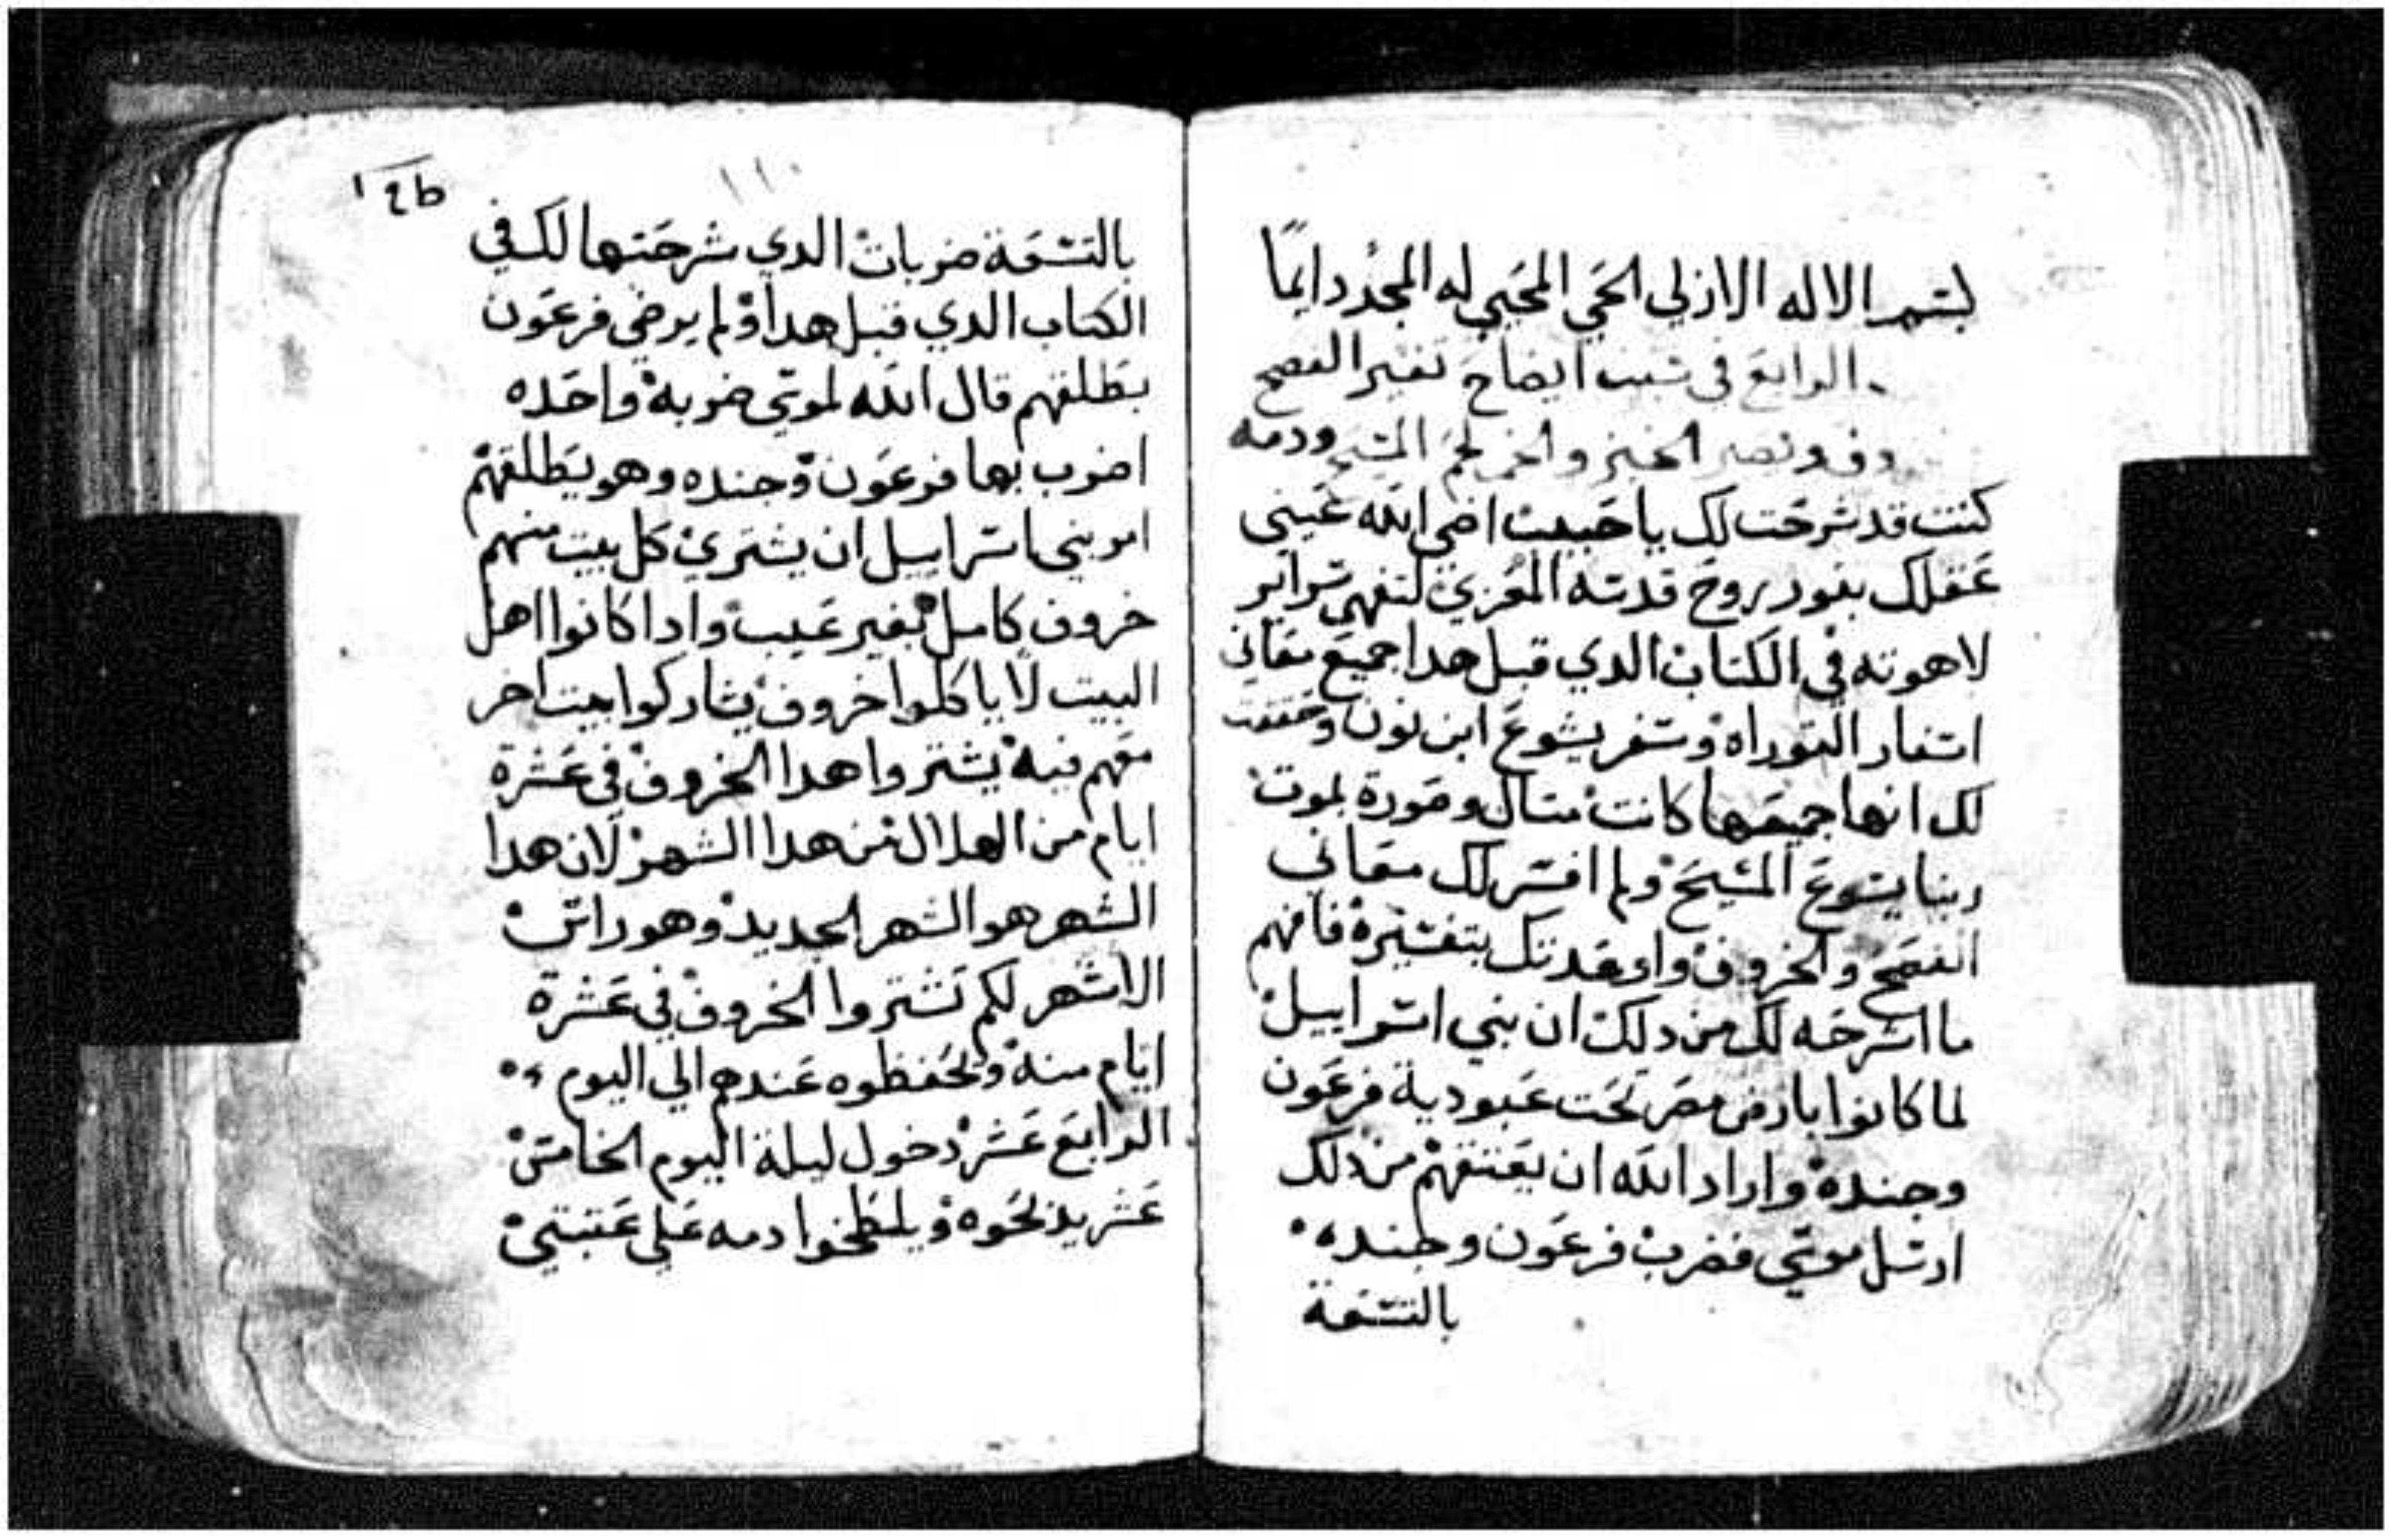 بسم الاله الازلي الحي المحيي له المجد دايمًا
الرابع في تبيت ايضاح تفسير الفصح
الخبز والخمر لحم المسيح ودمه
كنت قد شرحت لك يا حبيب اضي الله عيني
عقلك بنور روح قدسه المعزي لتفهم سراير
لاهوته في الكتاب الدي قبل هدا جميع معاني
اسفار التوراه وسفر يشوع ابن نون وحققت
لك انها جميعها كانت متال وصورة لموت
ربنا يسوع المسيح ولم افسر لك معاني
الفصح والخروف واوعدتك بتفسيره فافهم
ما اشرحه لك من دلك ان بني اسراييل
لما كانوا بارض مصر تحت عبودية فرعون
وجنده واراد الله ان يعتقهم من دلك
ارسل موسي فضرب فرعون وجنده
بالتسعة
١١٠
بالتسعة ضربات الدي شرحتها لك في
الكتاب الدي قبل هدا ولم يرضي فرعون
يطلقهم قال الله لموسي ضربة واحده
اضرب بها فرعون وجنده وهو يطلقهم
امر بني اسراييل ان يشتري كل بيت منهم
خروف كامل بغير عيب وادا كانوا اهل
البيت لا ياكلوا خروف يشاركوا بيت اخر
معهم فيه يشتروا هدا الخروف في عشرة
ايام من الهلال من هدا الشهر لان هدا
الشهر هو الشهر الجديد وهو راس
الاشهر لكم تشتروا الخروف في عشرة
ايام منه وتحفظوه عندهم الي اليوم
الرابع عشر دخول ليلة اليوم الخامس
عشر يذبحوه ويلطخوا دمه علي عتبتي